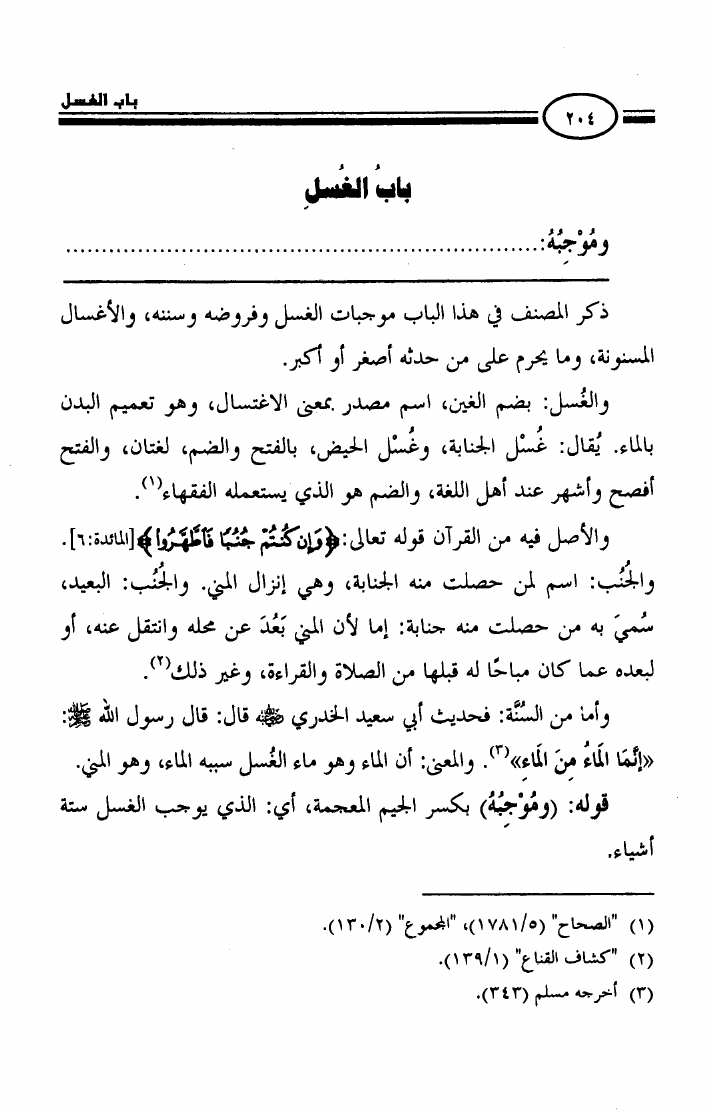 باب الغسل
٢٠٤
بابُ الغُسلِ
ومُوْجِبُهُ: ................................................................
ذكر المصنف في هذا الباب موجبات الغسل وفروضه وسننه، والأغسال
المسنونة، وما يحرم على من حدثه أصغر أو أكبر.
والغُسل: بضم الغين، اسم مصدر بمعنى الاغتسال، وهو تعميم البدن
بالماء. يُقال: غُسْل الجنابة، وغُسْل الحيض، بالفتح والضم، لغتان، والفتح
أفصح وأشهر عند أهل اللغة، والضم هو الذي يستعمله الفقهاء(١).
والأصل فيه من القرآن قوله تعالى: ﴿وَإِن كُنتُمْ جُنُبًا فَاطَّهَّرُوا﴾ [المائدة:٦].
والجُنُب: اسم لمن حصلت منه الجنابة، وهي إنزال المني. والجُنُب: البعيد،
سُميَ به من حصلت منه جنابة: إما لأن المني بَعُدَ عن محله وانتقل عنه، أو
لبعده عما كان مباحًا له قبلها من الصلاة والقراءة، وغير ذلك(٢).
وأما من السُّنَّة: فحديث أبي سعيد الخدري ﷺ قال: قال رسول الله ﷺ:
«إِنَّمَا الْمَاءُ مِنَ الْمَاءِ»(٣). والمعنى: أن الماء وهو ماء الغُسل سببه الماء، وهو المني.
قوله: (ومُوْجِبُهُ) بكسر الجيم المعجمة، أي: الذي يوجب الغسل ستة
أشياء.
(١) "الصحاح" (١٧٨١/٥)، "المجموع" (١٣٠/٢).
(٢) "كشاف القناع" (١٣٩/١).
(٣) أخرجه مسلم (٣٤٣).